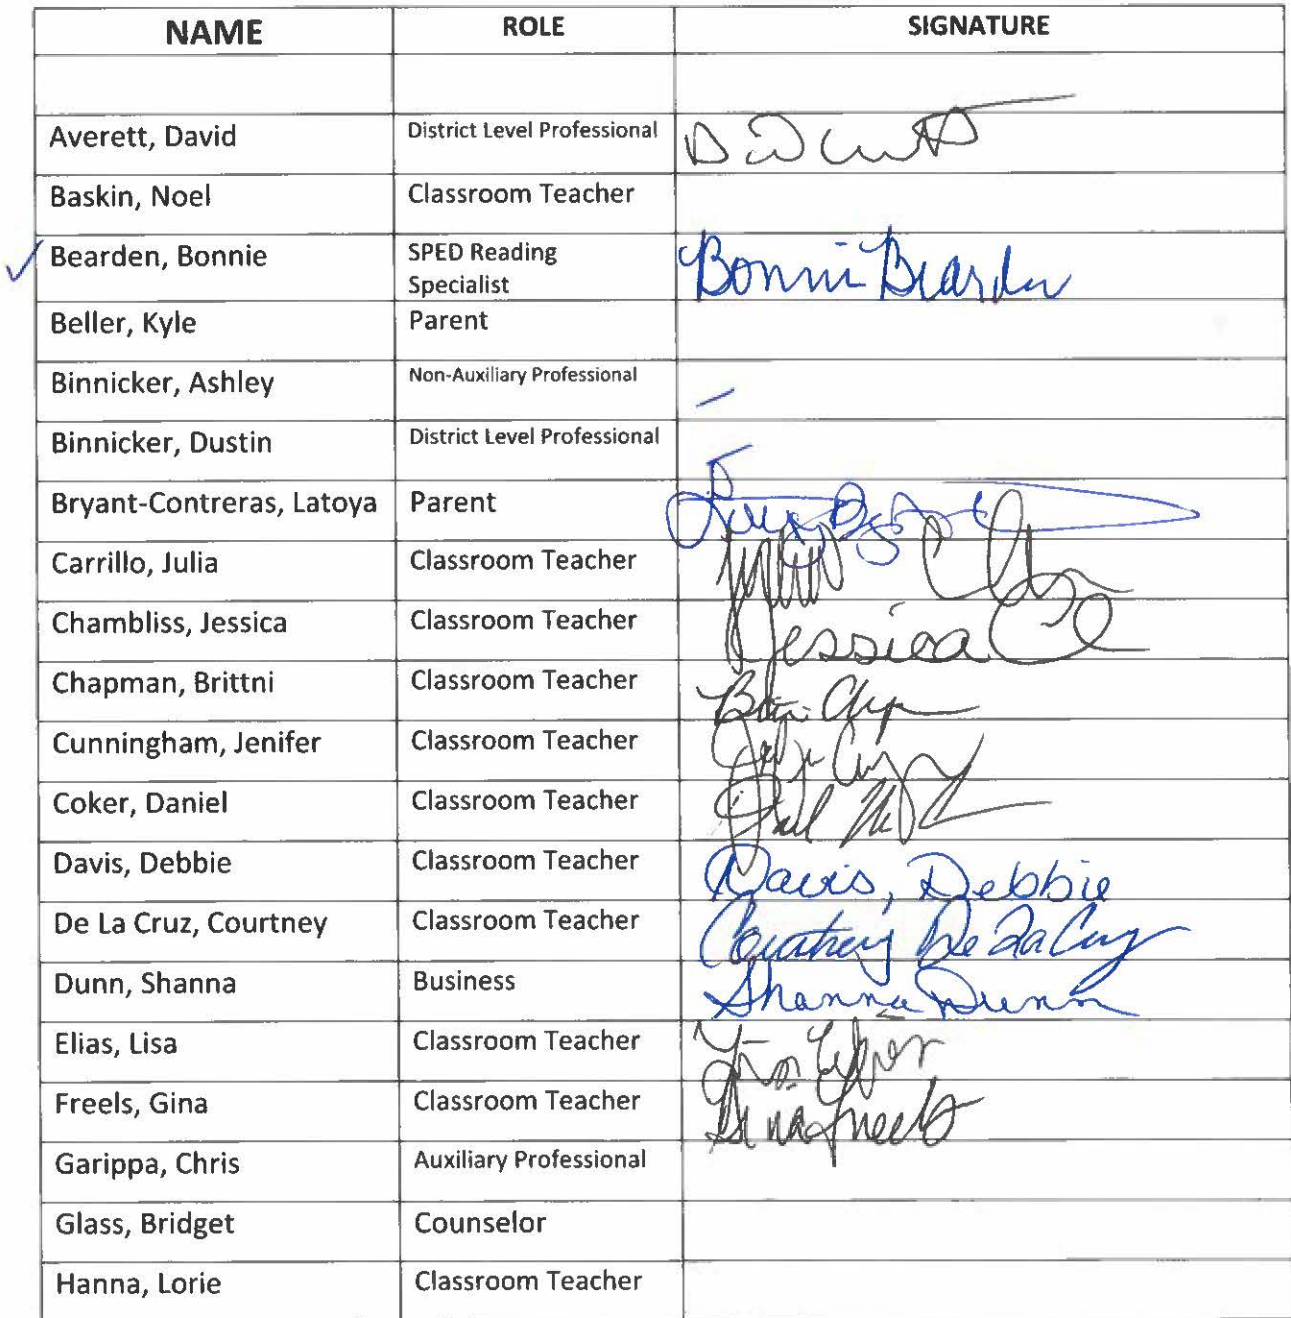 NAME ROLE SIGNATURE
Averett, David District Level Professional
Baskin, Noel Classroom Teacher
Bearden, Bonnie SPED Reading Specialist Bonnie Bearden
Beller, Kyle Parent
Binnicker, Ashley Non-Auxiliary Professional
Binnicker, Dustin District Level Professional
Bryant-Contreras, Latoya Parent
Carrillo, Julia Classroom Teacher
Chambliss, Jessica Classroom Teacher Jessica
Chapman, Brittni Classroom Teacher
Cunningham, Jenifer Classroom Teacher
Coker, Daniel Classroom Teacher
Davis, Debbie Classroom Teacher Davis, Debbie
De La Cruz, Courtney Classroom Teacher Courtney De La Cruz
Dunn, Shanna Business Shanna Dunn
Elias, Lisa Classroom Teacher
Freels, Gina Classroom Teacher Gina Freels
Garippa, Chris Auxiliary Professional
Glass, Bridget Counselor
Hanna, Lorie Classroom Teacher